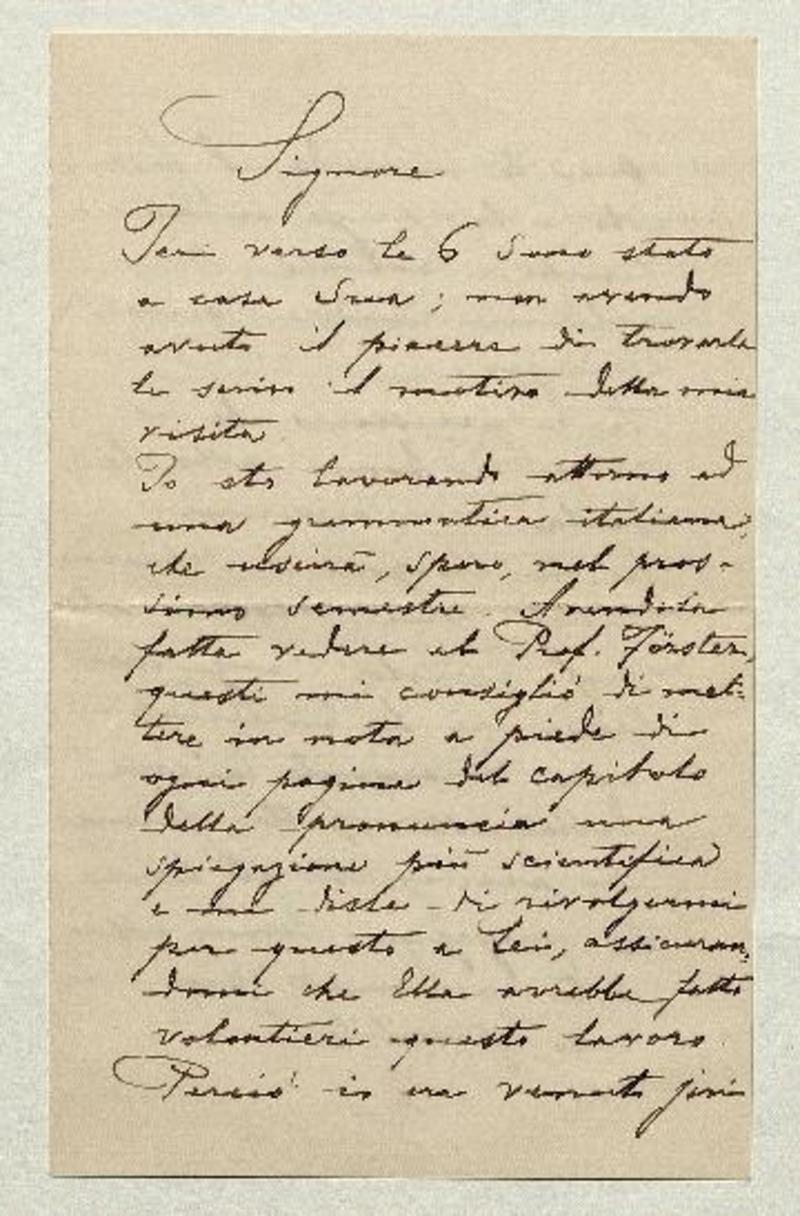 Signore
Jeri verso le 6 sono stato
a casa Sua; non avendo
avuto il piacere di trovarla
le scrivo il motivo della mia
visita.
Io sto lavorando attorno ad
una grammatica italiana,
che uscirà, spero, nel pros-
simo semestre. Avendola
fatta vedere al Prof. Förster,
questi mi consigliò di met-
tere in nota a piede di
ogni pagina del capitolo
della pronuncia una
spiegazione più scientifica
e mi disse di rivolgermi
per questo a Lei, assicuran-
domi che Ella avrebbe fatto
volontieri questo lavoro.
Perciò io era venuto jeri